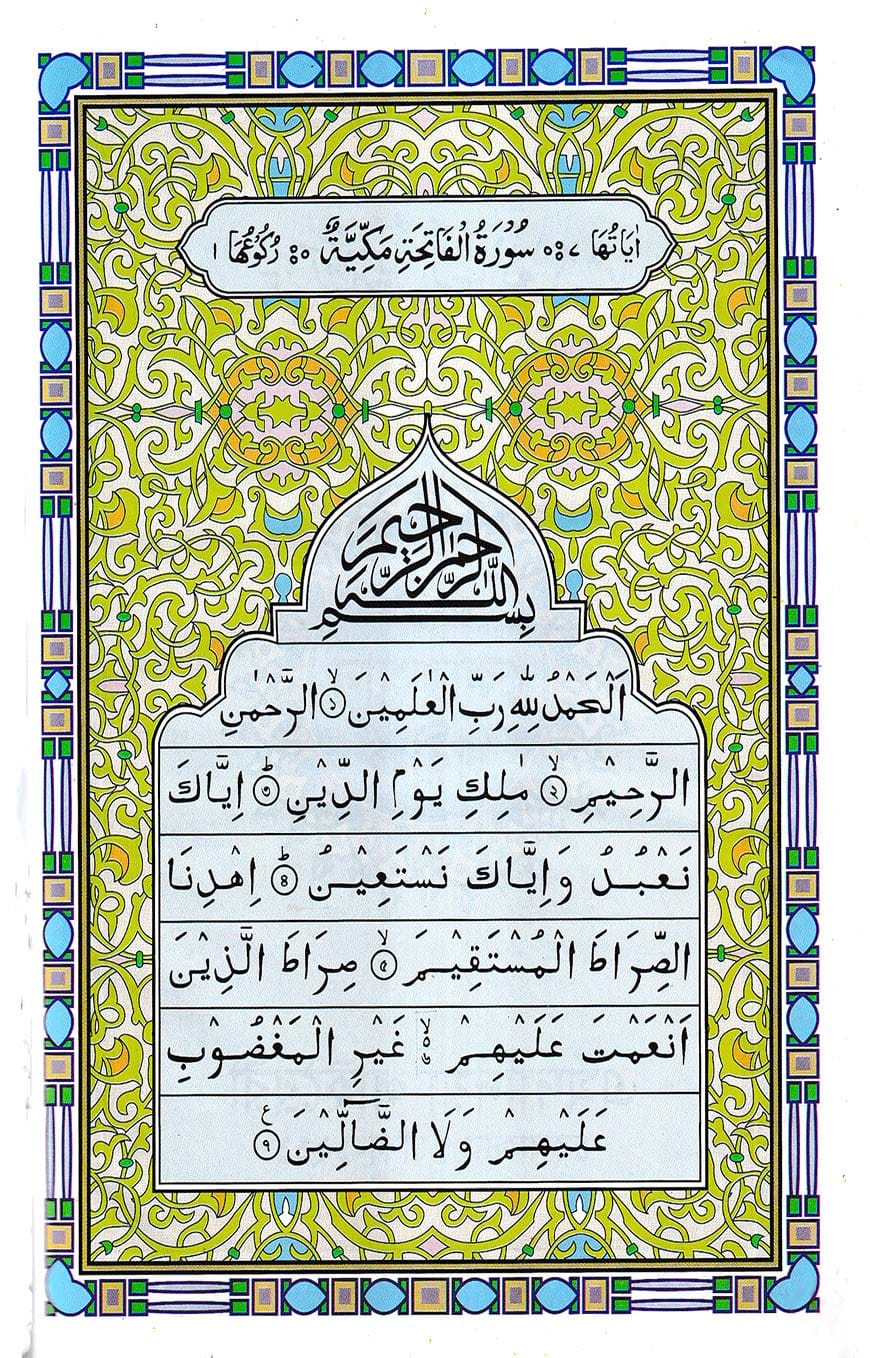 اٰيَاتُهَا ٧ سُوْرَةُ الْفَاتِحَةِ مَكِّيَّةٌ رُكُوْعُهَا ١
بِسْمِ اللّٰهِ الرَّحْمٰنِ الرَّحِيْمِ
اَلْحَمْدُ لِلّٰهِ رَبِّ الْعٰلَمِيْنَ ۙ ১ الرَّحْمٰنِ
الرَّحِيْمِ ۙ ২ مٰلِكِ يَوْمِ الدِّيْنِ ؕ ৩ اِيَّاكَ
نَعْبُدُ وَاِيَّاكَ نَسْتَعِيْنُ ؕ ৪ اِهْدِنَا
الصِّرَاطَ الْمُسْتَقِيْمَ ۙ ৫ صِرَاطَ الَّذِيْنَ
اَنْعَمْتَ عَلَيْهِمْ ۙ ৬ غَيْرِ الْمَغْضُوْبِ
عَلَيْهِمْ وَلَا الضَّآلِّيْنَ ۧ ৭